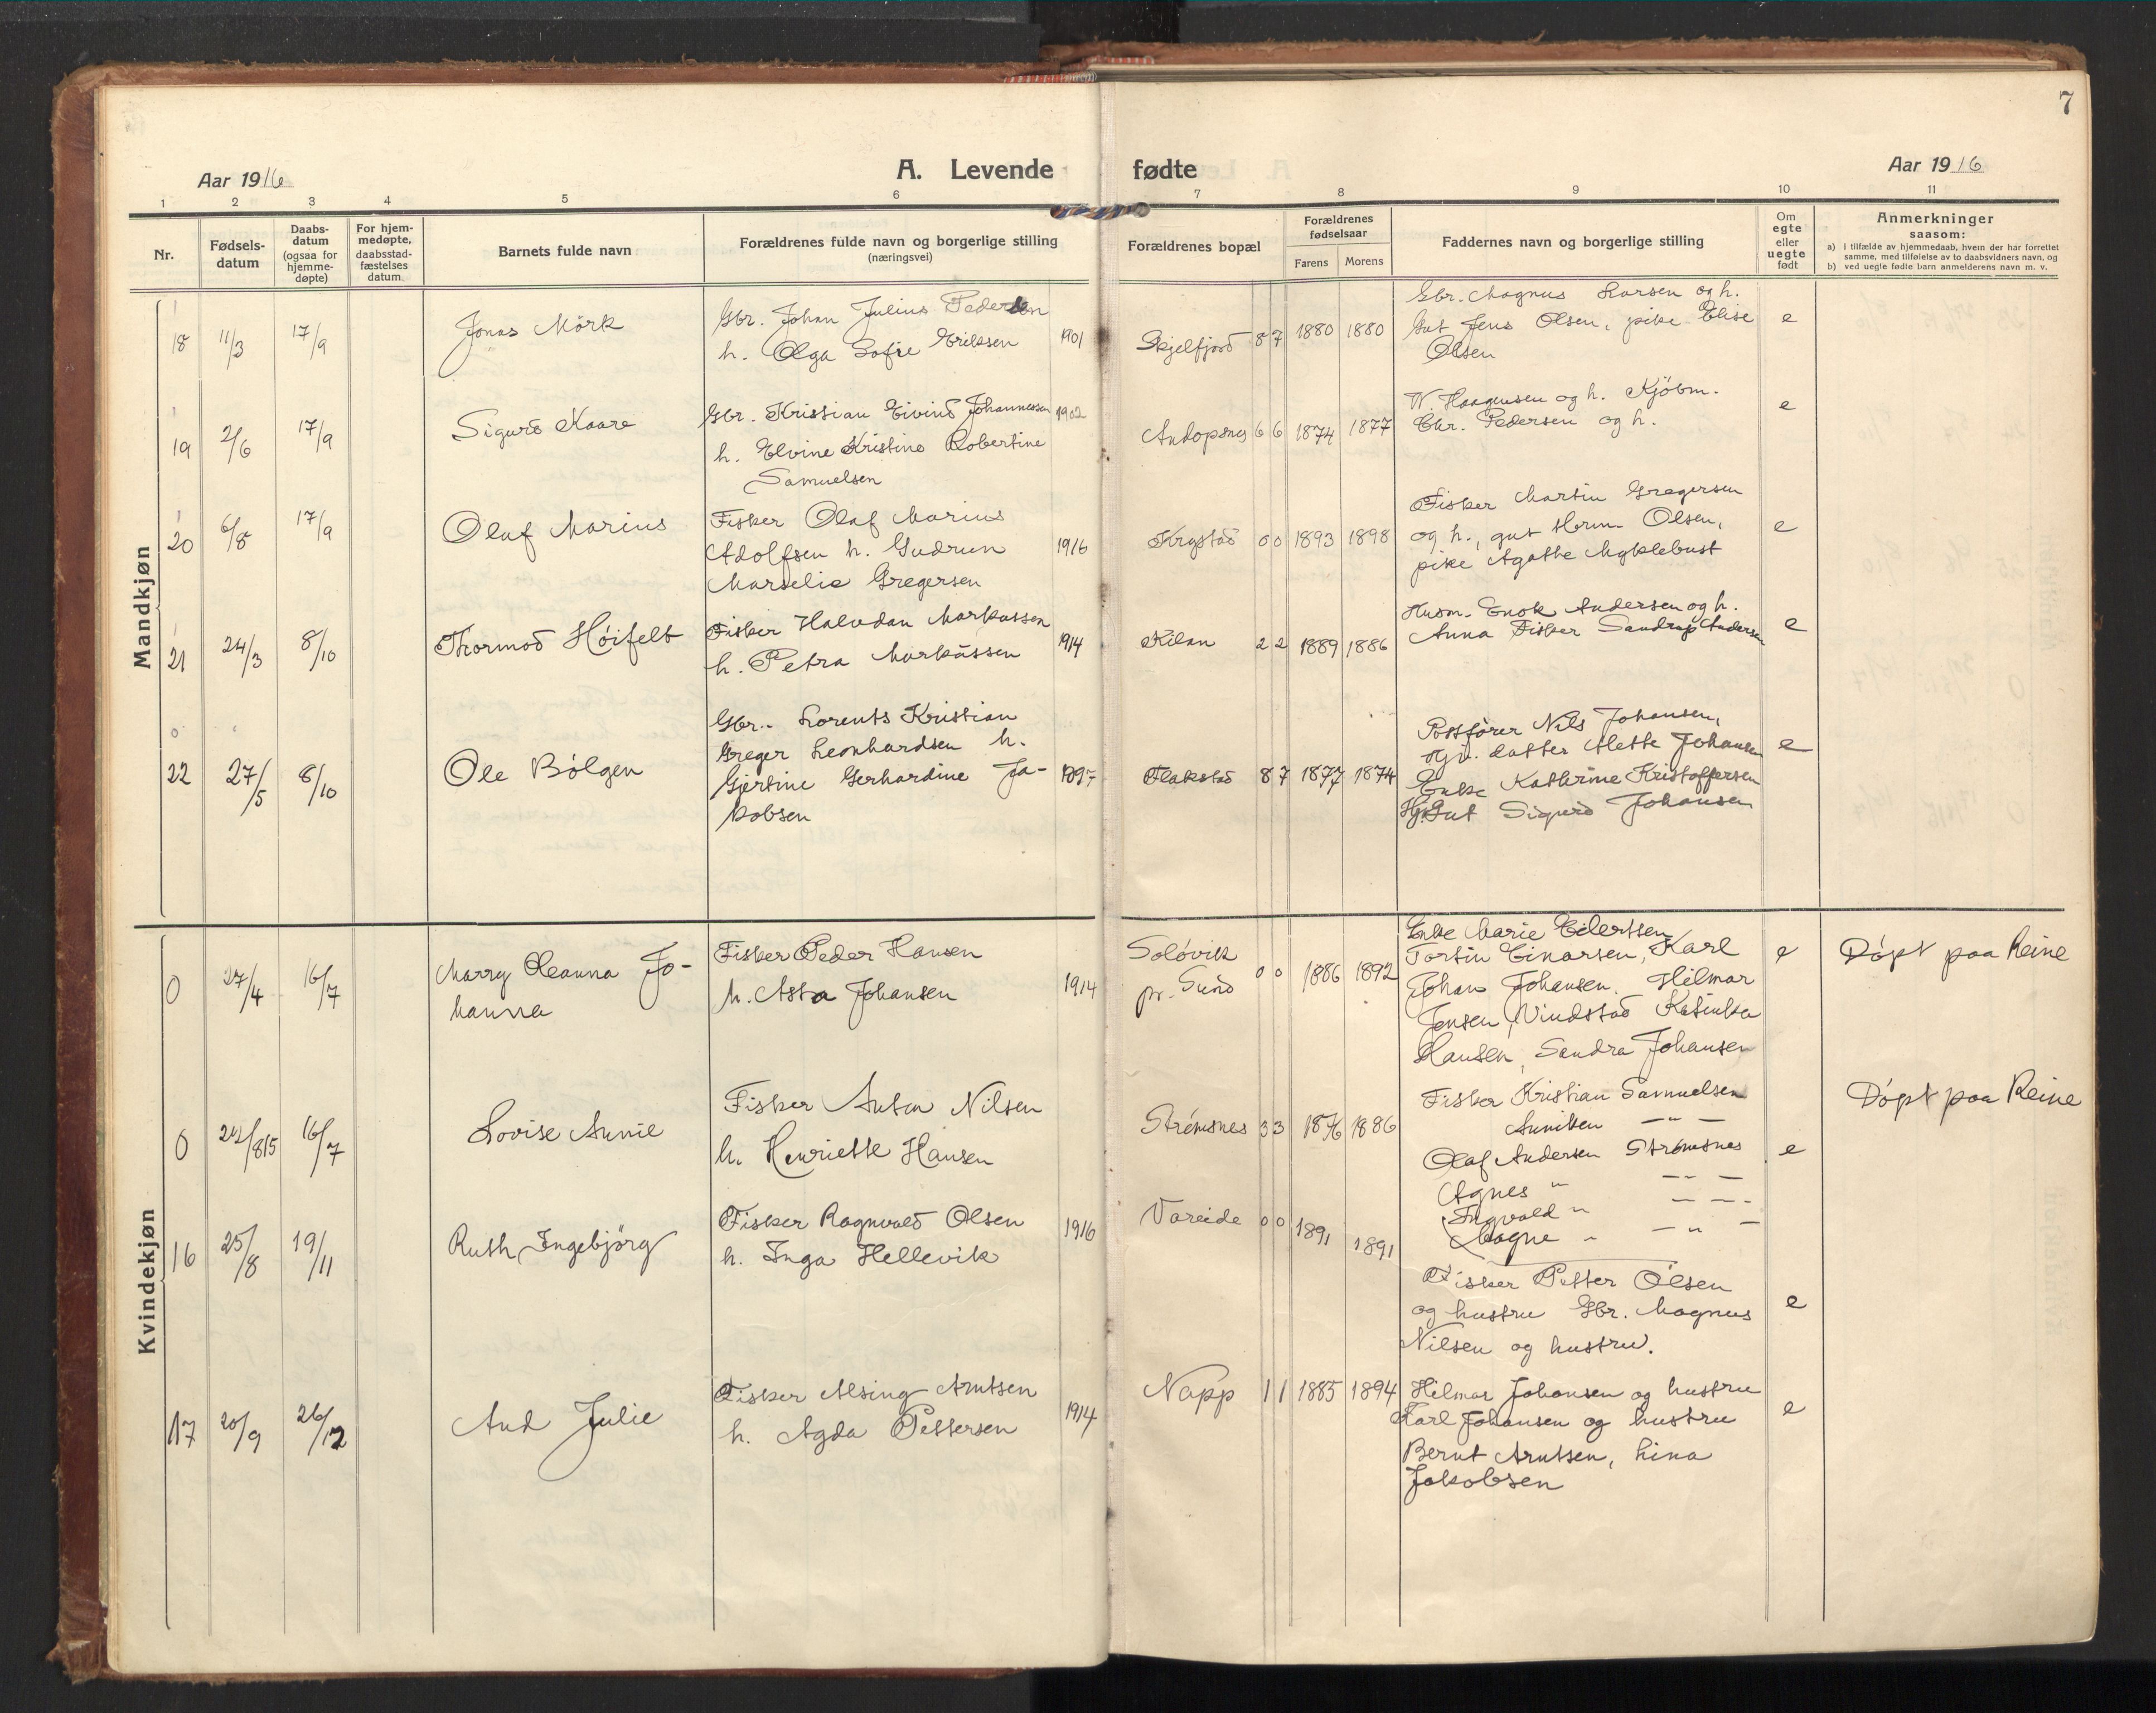 7
Aar 1916
A. Levende fødte
Aar 1916
1 2 3 4 5 6 7 8 9 10 11
Nr.
Fødsels-
datum
Daabs-
datum
(ogsaa for
hjemme-
døpte)
For hjem-
medøpte,
daabsstad-
fæstelses
datum
Barnets fulde navn
Forældrenes fulde navn og borgerlige stilling
(næringsvei)
Forældrenes bopæl
Forældrenes
fødselsaar
Farens Morens
Faddernes navn og borgerlige stilling
Om
egte
eller
uegte
født
Anmerkninger
saasom:
a) i tilfælde av hjemmedaab, hvem der har forrettet
samme, med tilføielse av to daabsvidners navn, og
b) ved uegte fødte barn anmelderens navn m. v.
Mandkjøn
18 11/3 17/9
Jonas Mörk
Gbr. Johan Julius Pedersen
h. Olga Sofie Eriksen 1901
Skjelfjord 8 7 1880 1880
Gbr. Magnus Larsen og h.
Gut Jens Olsen, pike Elise
Olsen
e
19 2/6 17/9
Sigurd Kaare
Gbr. Kristian Eivind Johannessen 1902
h. Elvine Kristine Robertine
Samuelsen
Andopsnes 6 6 1874 1877
W. Haagensen og h. Kjöbm.
Chr. Pedersen og h.
e
20 6/8 17/9
Olaf Marius
Fisker Olaf Marius
Adolfsen h. Gudrun 1916
Marselie Gregersen
Krystad 0 0 1893 1898
Fisker Martin Gregersen
og h., gut Herm. Olsen,
pike Agathe Myklebust
e
21 24/3 8/10
Thormod Höifelt
Fisker Halvdan Markussen
h. Petra Markussen 1914
Kilan 2 2 1889 1886
Husm. Enok Andersen og h.
Anna Fisker Sandrup Andersen
e
22 27/5 8/10
Ole Bölgen
Gbr. Lorents Kristian
Greger Leonhardsen h.
Gjertine Gerhardine Ja- 1897
kobsen
Flakstad 8 7 1877 1874
Postförer Nils Johansen,
og datter Mette Johansen
Enke Kathrine Kristoffersen
Gut Sigurd Johansen
e
Kvindekjøn
0 27/4 16/7
Marry Oleanna Jo-
hanna
Fisker Peder Hansen
h. Asta Johansen 1914
Solövik
pr. Sund 0 0 1886 1892
Enke Marie Eilertsen
Tortin Einarsen, Karl
Johan Johansen. Hilmar
Jensen, Vindstad Katinka
Hansen, Sandra Johansen
e
Döpt paa Reine
0 22/8 15 16/7
Lovise Annie
Fisker Anton Nilsen
h. Henriette Hansen
Strömsnes 3 3 1876 1886
Fisker Kristian Samuelsen
Annitsen — " —
Olaf Andersen Strömsnes
Agnes " — " —
Ingvald " — " —
Magne " — " —
e
Döpt paa Reine
16 25/8 19/11
Ruth Ingebjörg
Fisker Ragnvald Olsen 1916
h. Inga Hellevik
Vareide 0 0 1891 1891
Fisker Petter Olsen
og hustru Gbr. Magnus
Nilsen og hustru.
e
17 20/9 26/12
Aud Julie
Fisker Alsing Arntsen
h. Agda Pettersen 1914
Napp 1 1 1885 1894
Hilmar Johansen og hustru
Karl Johansen og hustru
Bernt Arntsen, Lina
Jakobsen
e